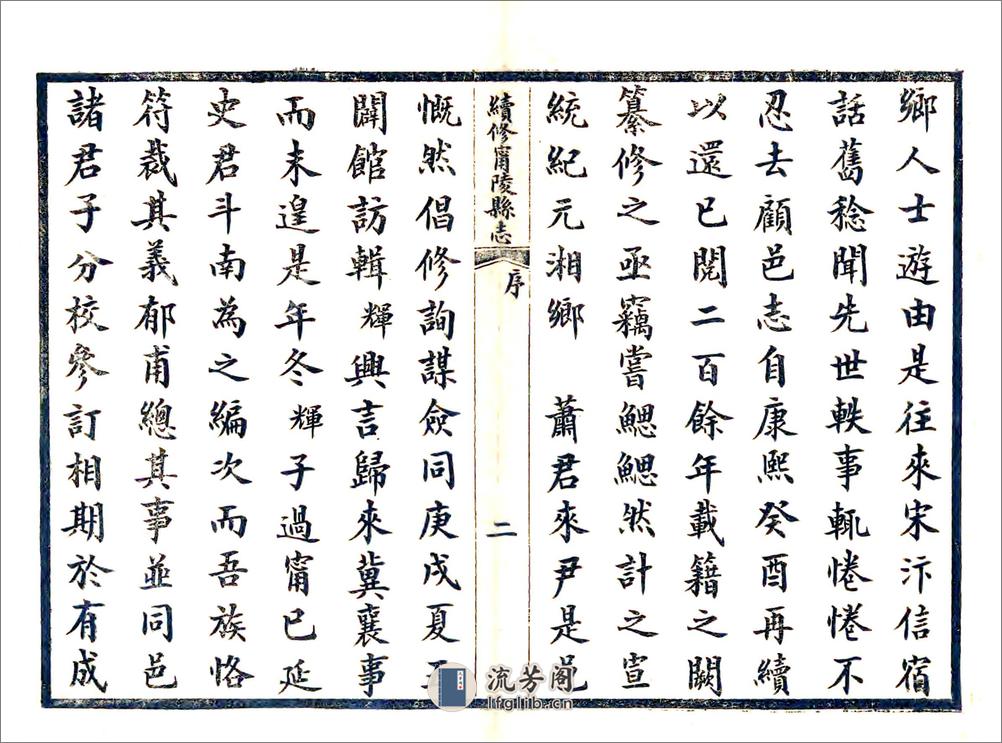 鄉人士遊由是往來宋汴信宿
話舊稔聞先世軼事輒惓惓不
忍去顧邑志自康熙癸酉再續
以還已閱二百餘年載籍之闕
纂修之亟竊嘗鰓鰓然計之宣
統紀元湘鄉 蕭君來尹是邑
續修甯陵縣志
序
二
慨然倡修詢謀僉同庚戌夏
闢館訪輯輝興言歸來冀襄事
而未遑是年冬輝子過甯已延
史君斗南為之編次而吾族恪
符裁其義郁甫總其事並同邑
諸君子分校參訂相期於有成
流芳阁
lfglib.cn